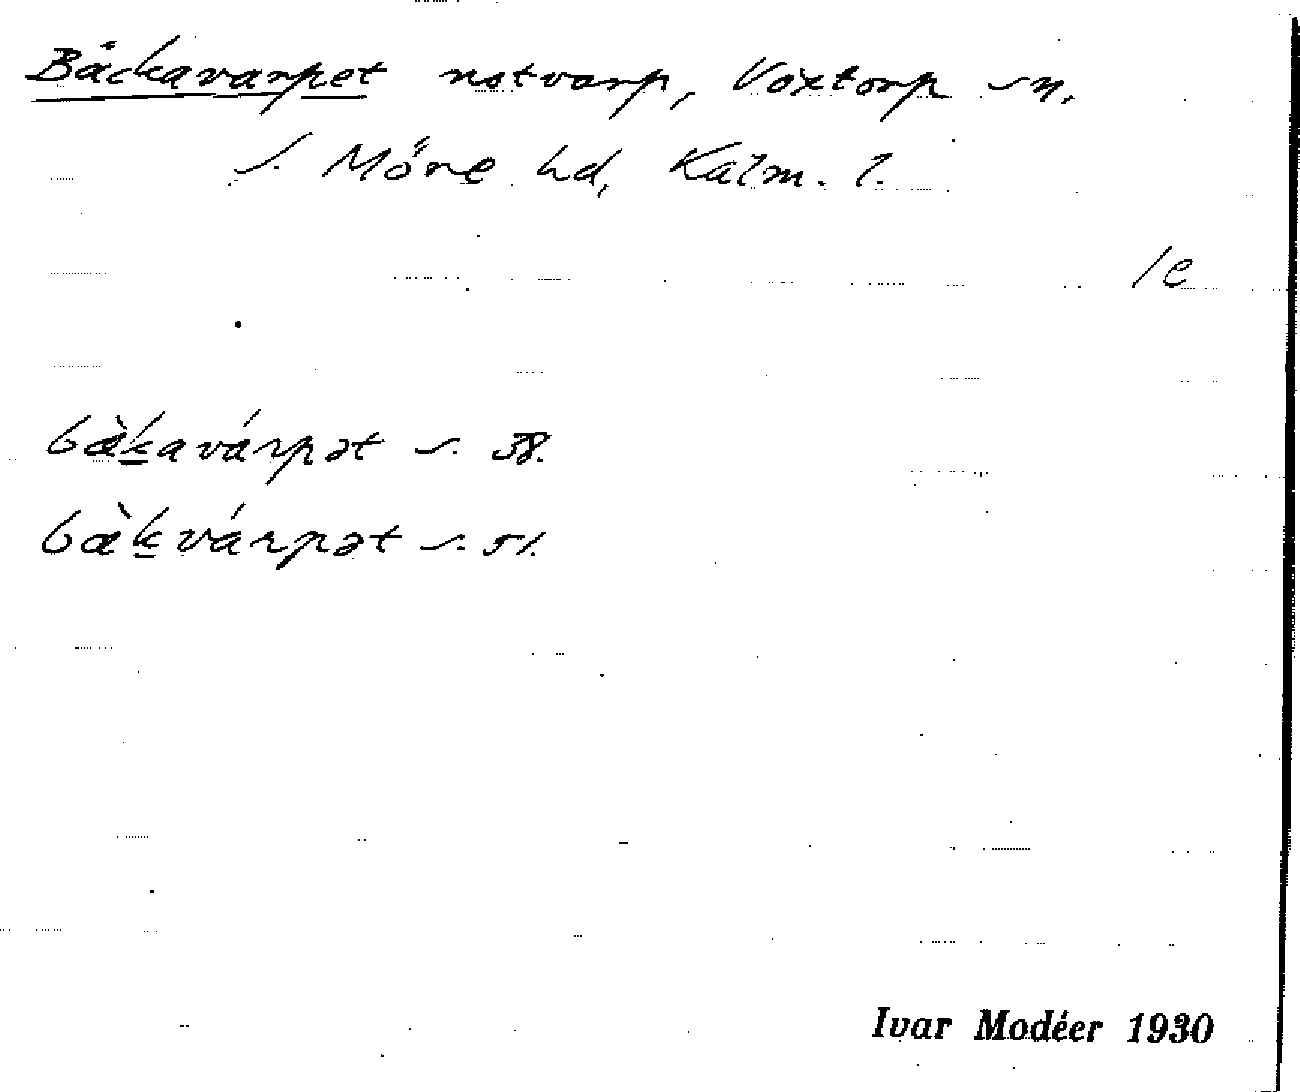 Bäckavarpet notvarp, Voxtorp sn.
s. Möre hd, Kalm. l.
1c
bàkavárpət s. 38.
bàkvárpət s. 51.
Ivar Modéer 1930